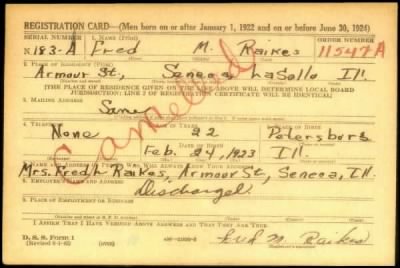 REGISTRATION CARD—(Men born on or after January 1, 1922 and on or before June 30, 1924)
SERIAL NUMBER 1. NAME (Print) ORDER NUMBER
N. 183-A Fred M. Raikes 11547A
2. PLACE OF RESIDENCE (Print)
Armour St, Seneca LaSalle Ill.
(THE PLACE OF RESIDENCE GIVEN ON THE LINE ABOVE WILL DETERMINE LOCAL BOARD
JURISDICTION; LINE 2 OF REGISTRATION CERTIFICATE WILL BE IDENTICAL)
3. MAILING ADDRESS
Same
Cancelled
4. TELEPHONE
None 22 Petersburg
DATE OF BIRTH
Feb. 24, 1923 Ill.
7. NAME AND ADDRESS OF PERSON WHO WILL ALWAYS KNOW YOUR ADDRESS
Mrs. Fred Raikes, Armour St, Seneca, Ill.
8. EMPLOYER'S NAME AND ADDRESS
Discharged.
9. PLACE OF EMPLOYMENT OR BUSINESS
I AFFIRM THAT I HAVE VERIFIED ABOVE ANSWERS AND THAT THEY ARE TRUE.
D. S. S. Form 1
Fred M. Raikes